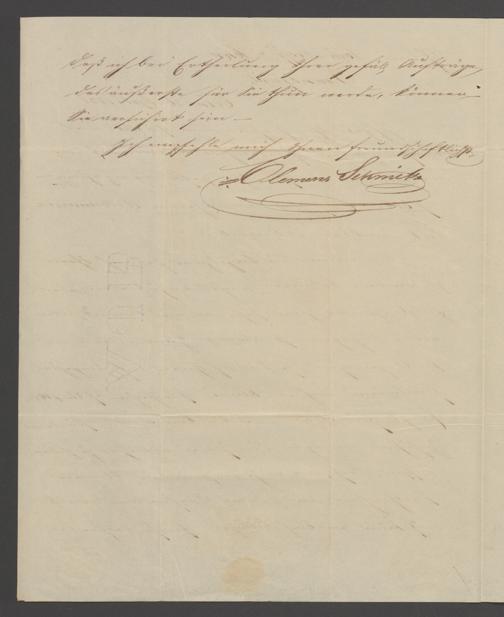 daß ich bei Ertheilung Ihrer gefäll Aufträge,
das äußerste für Sie thun werde, können
Sie versichert sein. —
Ich empfehle mich Ihnen freundschaftlichst
Clemens Schmitz